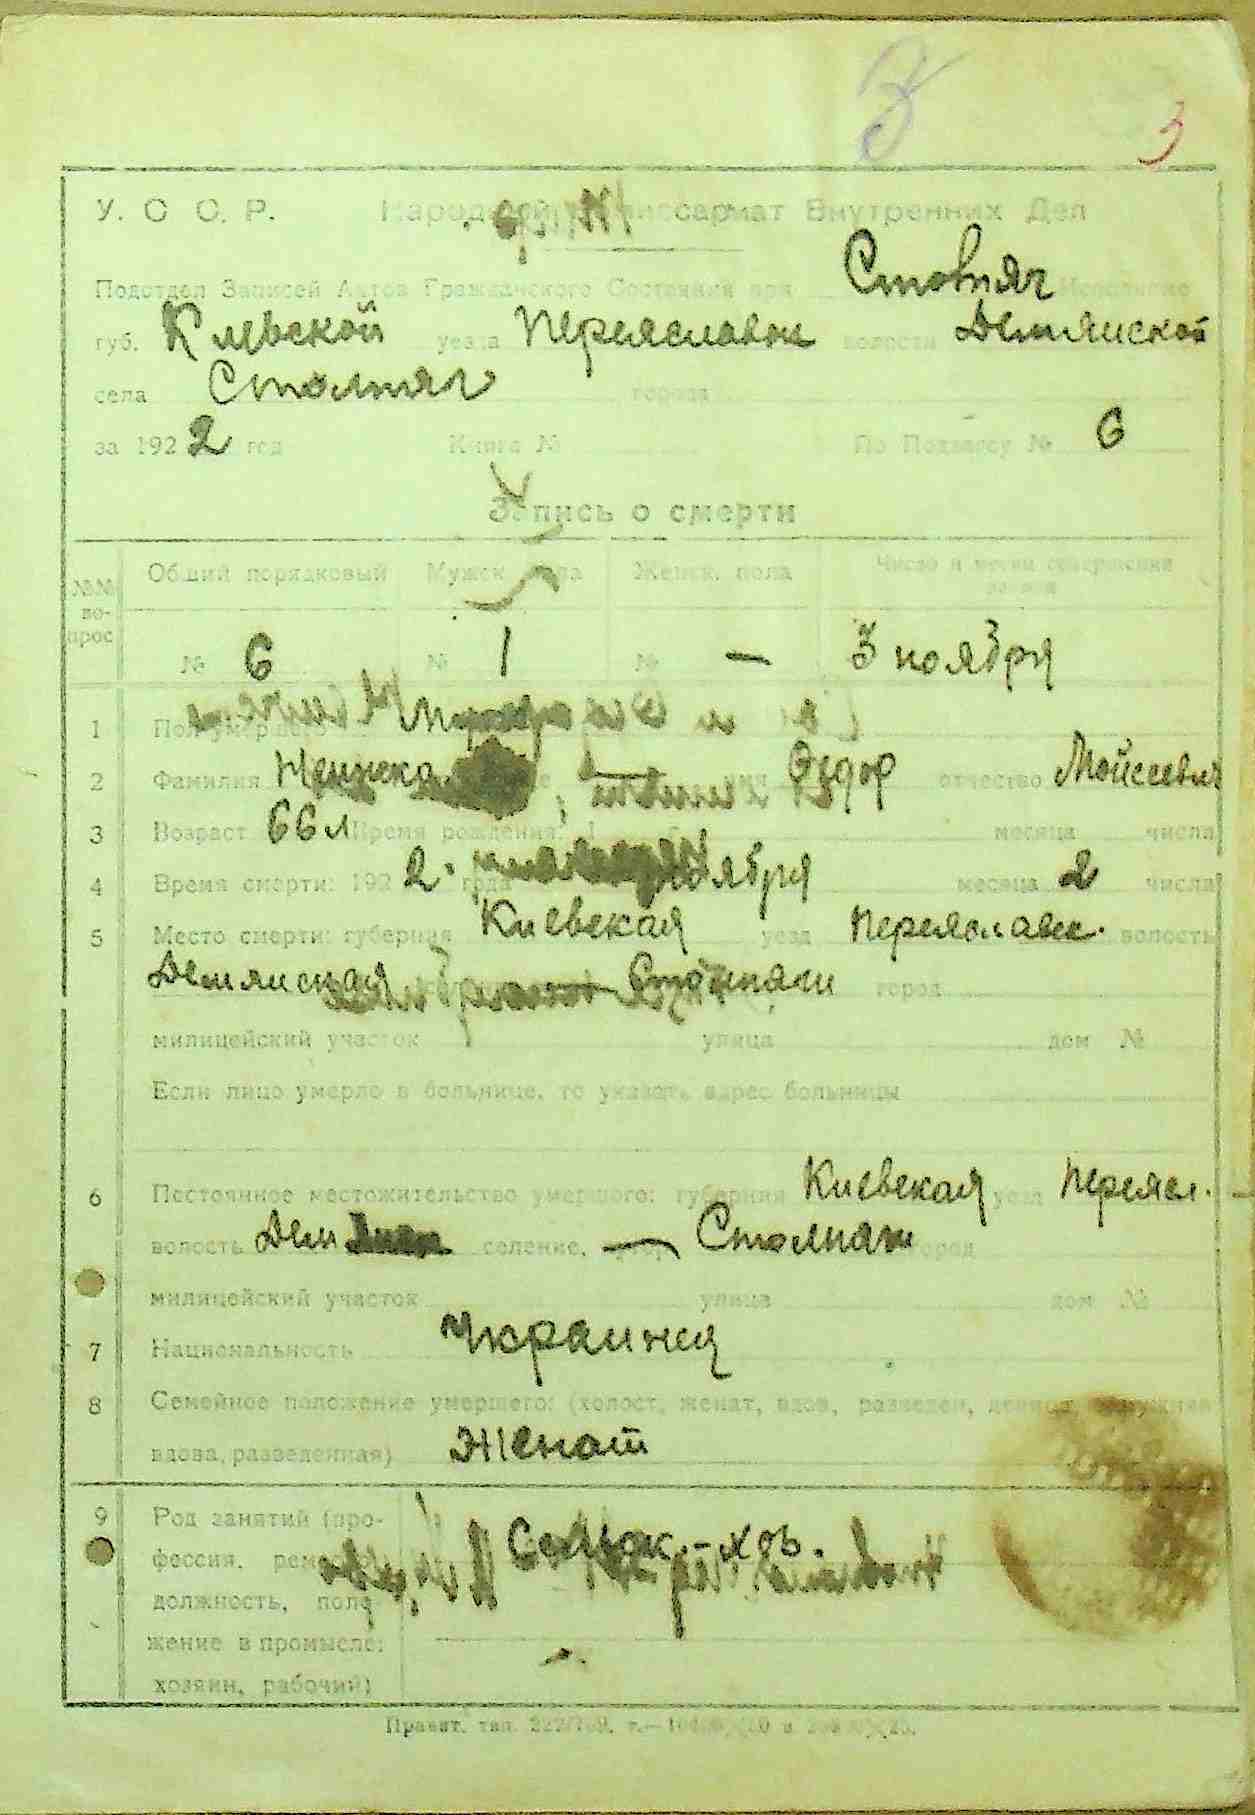 3
3
У. С С. Р. Народный Комиссариат Внутренних Дел
Подотдел Записей Актов Гражданского Состояния при Исполкоме
губ. Киевской уезда Переяславск волости Демянской
села Столпяг города
за 1922 год Книга № По Подвлсу № 6
Запись о смерти
№№ вопрос Общий порядковый Мужск. пола Женск. пола Число и месяц совершения записи
№ 6 № 1 № — 3 ноября
1 Пол умершего
2 Фамилия имя Федор отчество Мойсеевич
3 Возраст 66 л Время рождения: 1 г. месяца числа
4 Время смерти: 1922 года ноября месяца 2 числа
5 Место смерти: губерния Киевская уезд Переяславск. волость
Демянская Столпяги город
милицейский участок улица дом №
Если лицо умерло в больнице, то указать адрес больницы
6 Постоянное местожительство умершего: губерния Киевская уезд Переясл.
волость Дем селение, — Столпяги город
милицейский участок улица дом №
7 Национальность Украинец
8 Семейное положение умершего: (холост, женат, вдов, разведен, девица, замужняя
вдова, разведенная) Женат
9 Род занятий (про-
фессия, ремесло, Сельск.-хоз.
должность, поло-
жение в промысле:
хозяин, рабочий)